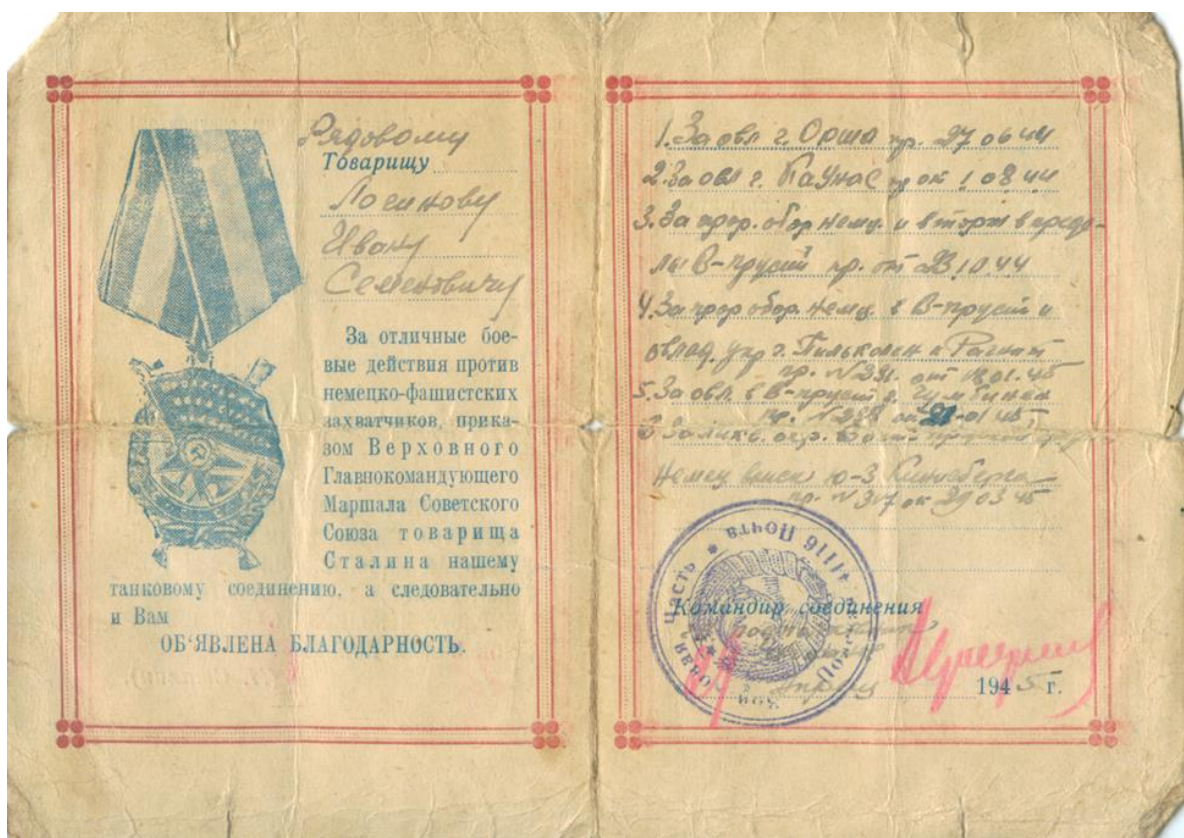 Рядовому
Товарищу
Логинову
Ивану
Семеновичу
За отличные бое-
вые действия против
немецко-фашистских
захватчиков, прика-
зом Верховного
Главнокомандующего
Маршала Советского
Союза товарища
Сталина нашему
танковому соединению, а следовательно
и Вам
ОБ‘ЯВЛЕНА БЛАГОДАРНОСТЬ.
1. За овл. г. Орша пр. 27 06 44
2. За овл г. Каунас пр от 1 08 44
3. За прор. обор немц. и вторж в преде-
лы В-пруссии пр. от 23 10 44
4. За прор обор. немц. в В-пруссии и
овлад. укр г. Пилькален и Рагнит
пр. № 231. от 18.01.45
5. За овл. в В-пруссии г. Гумбинен
пр. от 21-01 45
6 За ликв. окр.
немец войск ю-З Кенигсберга
пр. № 317 от 29 03 45
Полевая Почта 41116 Часть
Командир соединения
апреля 1945 г.